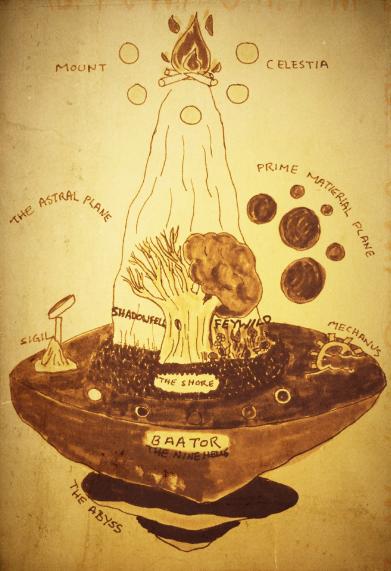 MOUNT CELESTIA
THE ASTRAL PLANE
PRIME MATERIAL PLANE
SHADOWFELL
FEYWILD
SIGIL
MECHANUS
THE SHORE
BAATOR
THE NINE HELLS
THE ABYSS